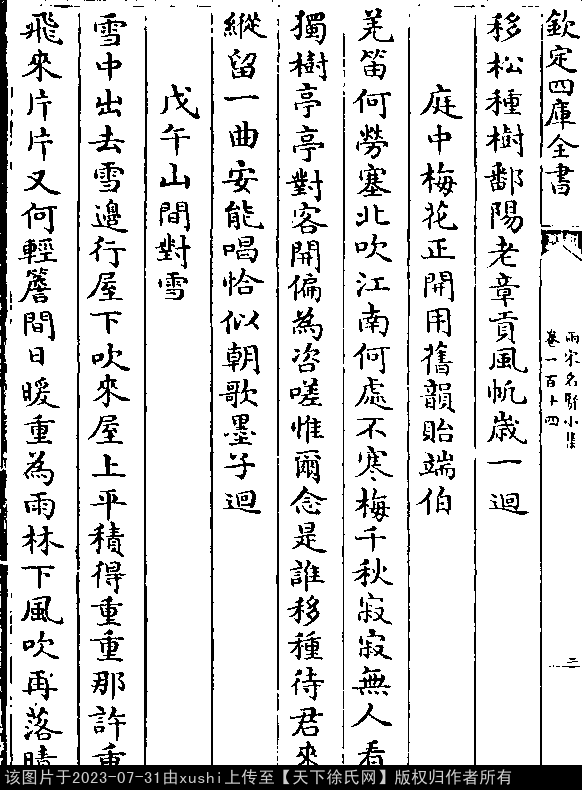 欽定四庫全書
兩宋名賢小集
卷一百十四
三
移松種樹鄱陽老章貢風帆歲一迴
庭中梅花正開用舊韻貽端伯
羌笛何勞塞北吹江南何處不寒梅千秋寂寂無人看
獨樹亭亭對客開偏為咨嗟惟爾念是誰移種待君來
縱留一曲安能唱恰似朝歌墨子迴
戊午山間對雪
雪中出去雪邊行屋下吹來屋上平積得重重那許重
飛來片片又何輕簷間日暖重為雨林下風吹再落晴
该图片于2023-07-31由xushi上传至【天下徐氏网】版权归作者所有